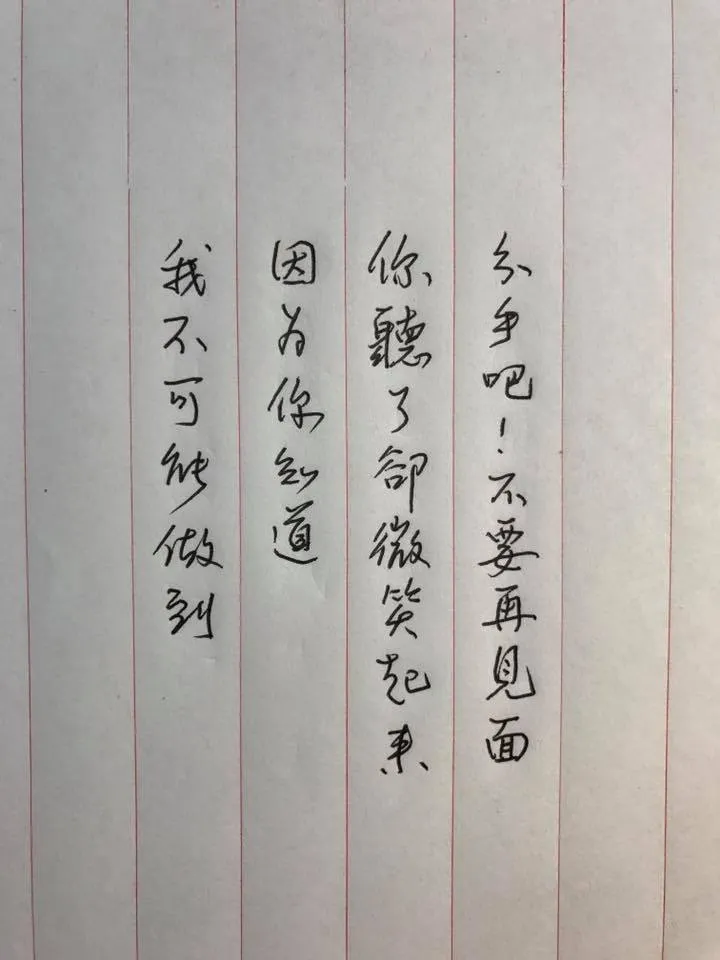 分手吧！不要再見面
你聽了卻微笑起來
因為你知道
我不可能做到